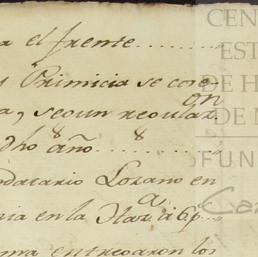 a el frente........
Primicia se core-
a, y segun regular.
on
dho año........
8 8
ndatario Lozano en
nia en la Haz.a a 6 p.
ma entregaron los
CEN
EST
DE H
DE N
FUN